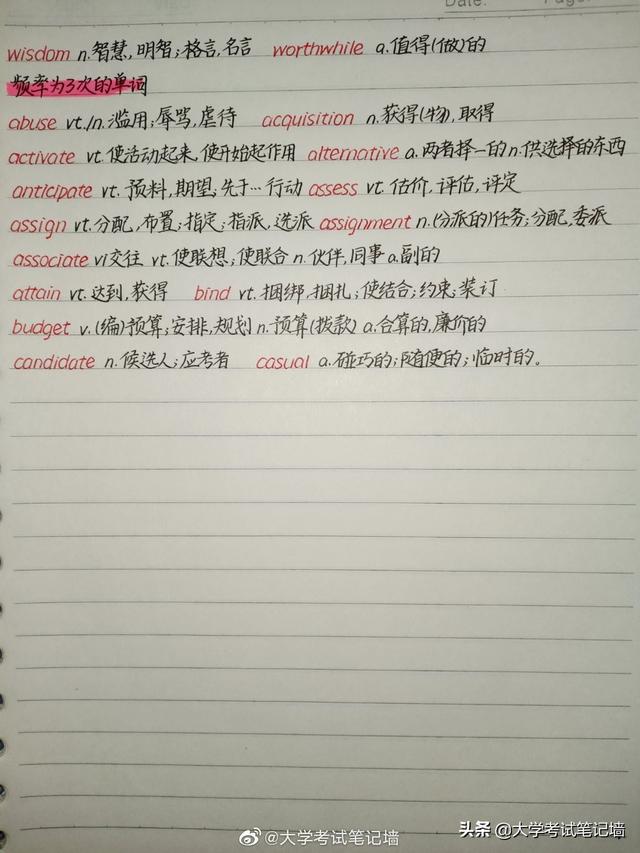 Date: Page:
wisdom n.智慧,明智;格言,名言 worthwhile a.值得(做)的
频率为3次的单词
abuse vt./n.滥用;辱骂,虐待 acquisition n.获得(物),取得
activate vt.使活动起来,使开始起作用 alternative a.两者择一的n.供选择的东西
anticipate vt.预料,期望;先于…行动 assess vt.估价,评估,评定
assign vt.分配,布置;指定;指派,选派 assignment n.(分派的)任务;分配,委派
associate vi交往 vt.使联想;使联合 n.伙伴,同事 a.副的
attain vt.达到,获得 bind vt.捆绑,捆扎;使结合;约束;装订
budget v.(编)预算;安排,规划 n.预算(拨款) a.合算的,廉价的
candidate n.候选人;应考者 casual a.碰巧的;随便的;临时的。
@大学考试笔记墙
头条 @大学考试笔记墙